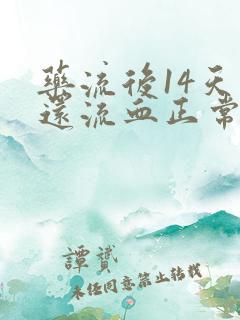 藥流後14天
還流血正常
譚贇
未经同意禁止转载